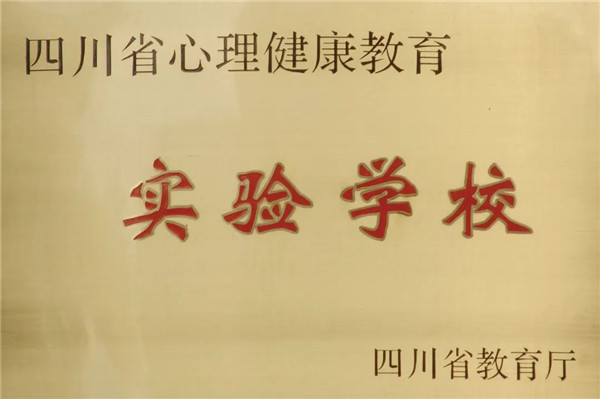 四川省心理健康教育
实验学校
四川省教育厅